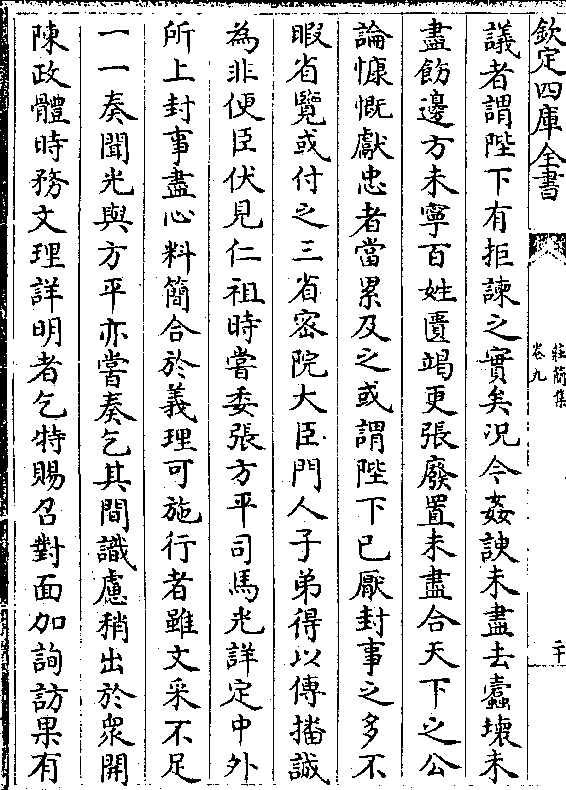 欽定四庫全書
莊簡集
卷九
二十
議者謂陛下有拒諫之實矣况今姦諛未盡去蠧壊未
盡飭邊方未寧百姓匱竭更張廢置未盡合天下之公
論慷慨獻忠者當累及之或謂陛下已厭封事之多不
暇省覽或付之三省宻院大臣門人子弟得以傳播誠
為非便臣伏見仁祖時嘗委張方平司馬光詳定中外
所上封事盡心料簡合於義理可施行者雖文采不足
一一奏聞光與方平亦嘗奏乞其間識慮稍出於衆開
陳政體時務文理詳明者乞特賜召對面加詢訪果有